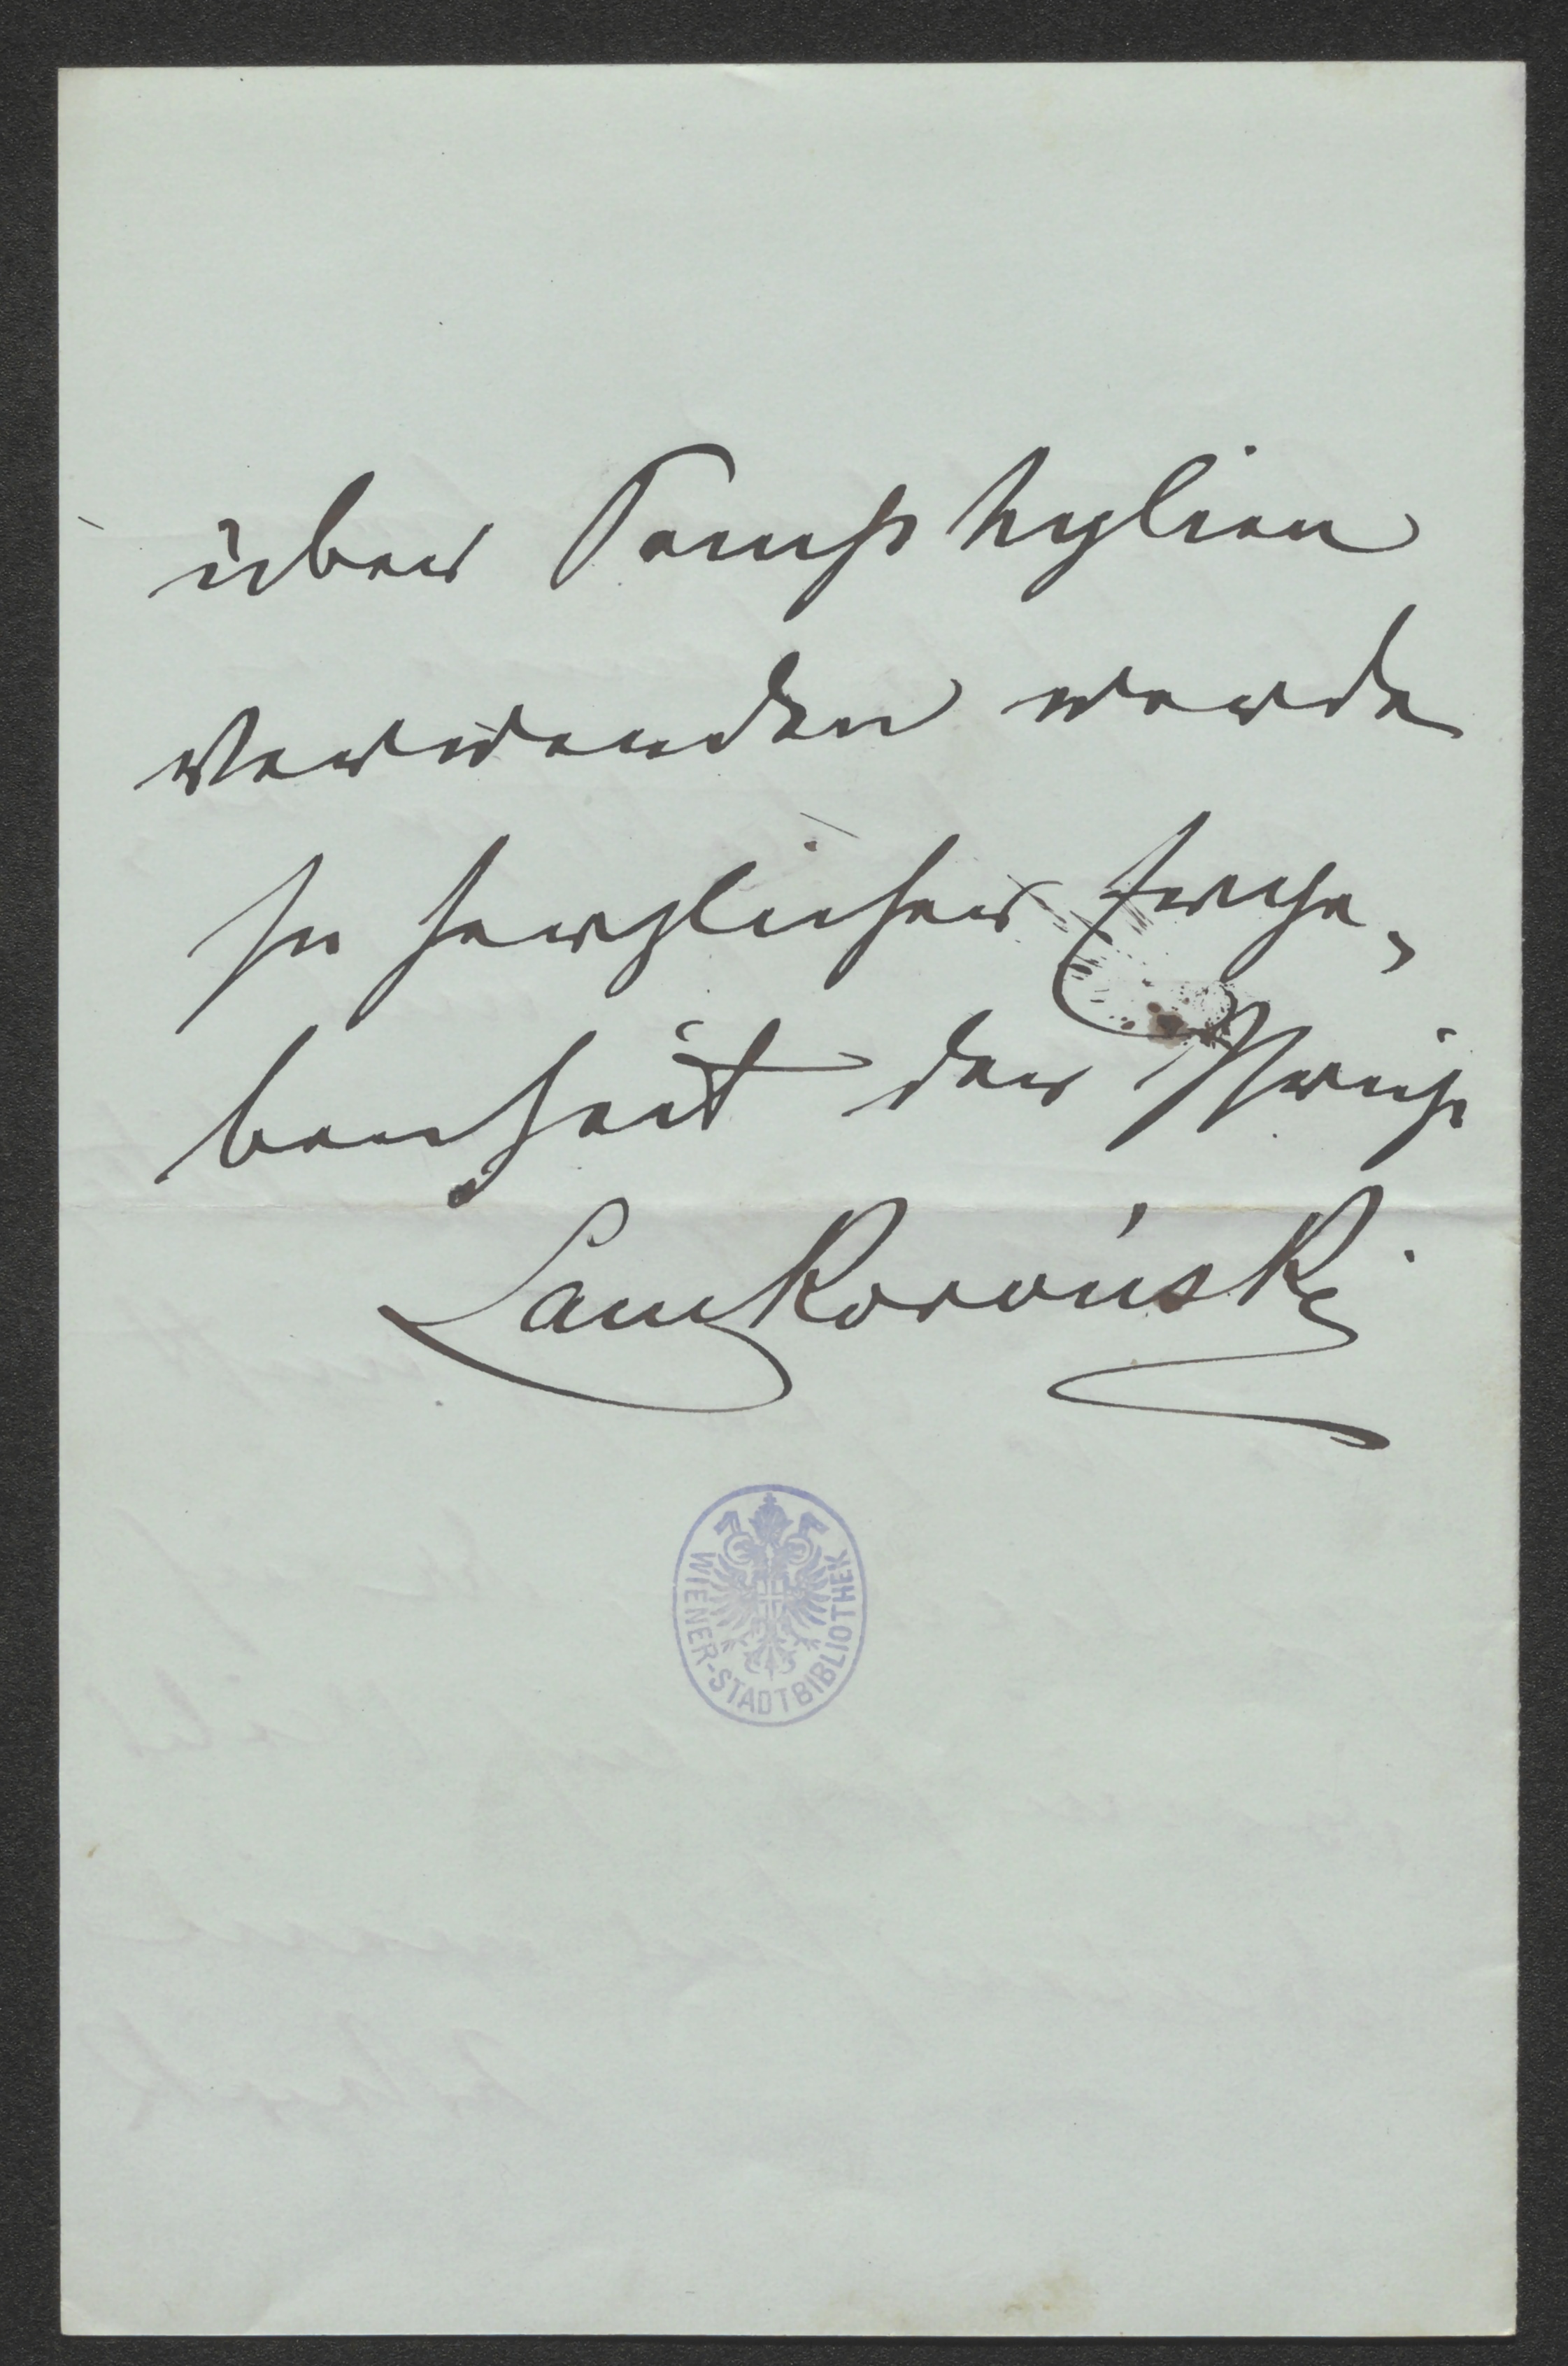 über Pamphylien
verwenden werde
In herzlicher Erge-
benheit der Ihrige
Lanckoroński
WIENER-STADTBIBLIOTHEK